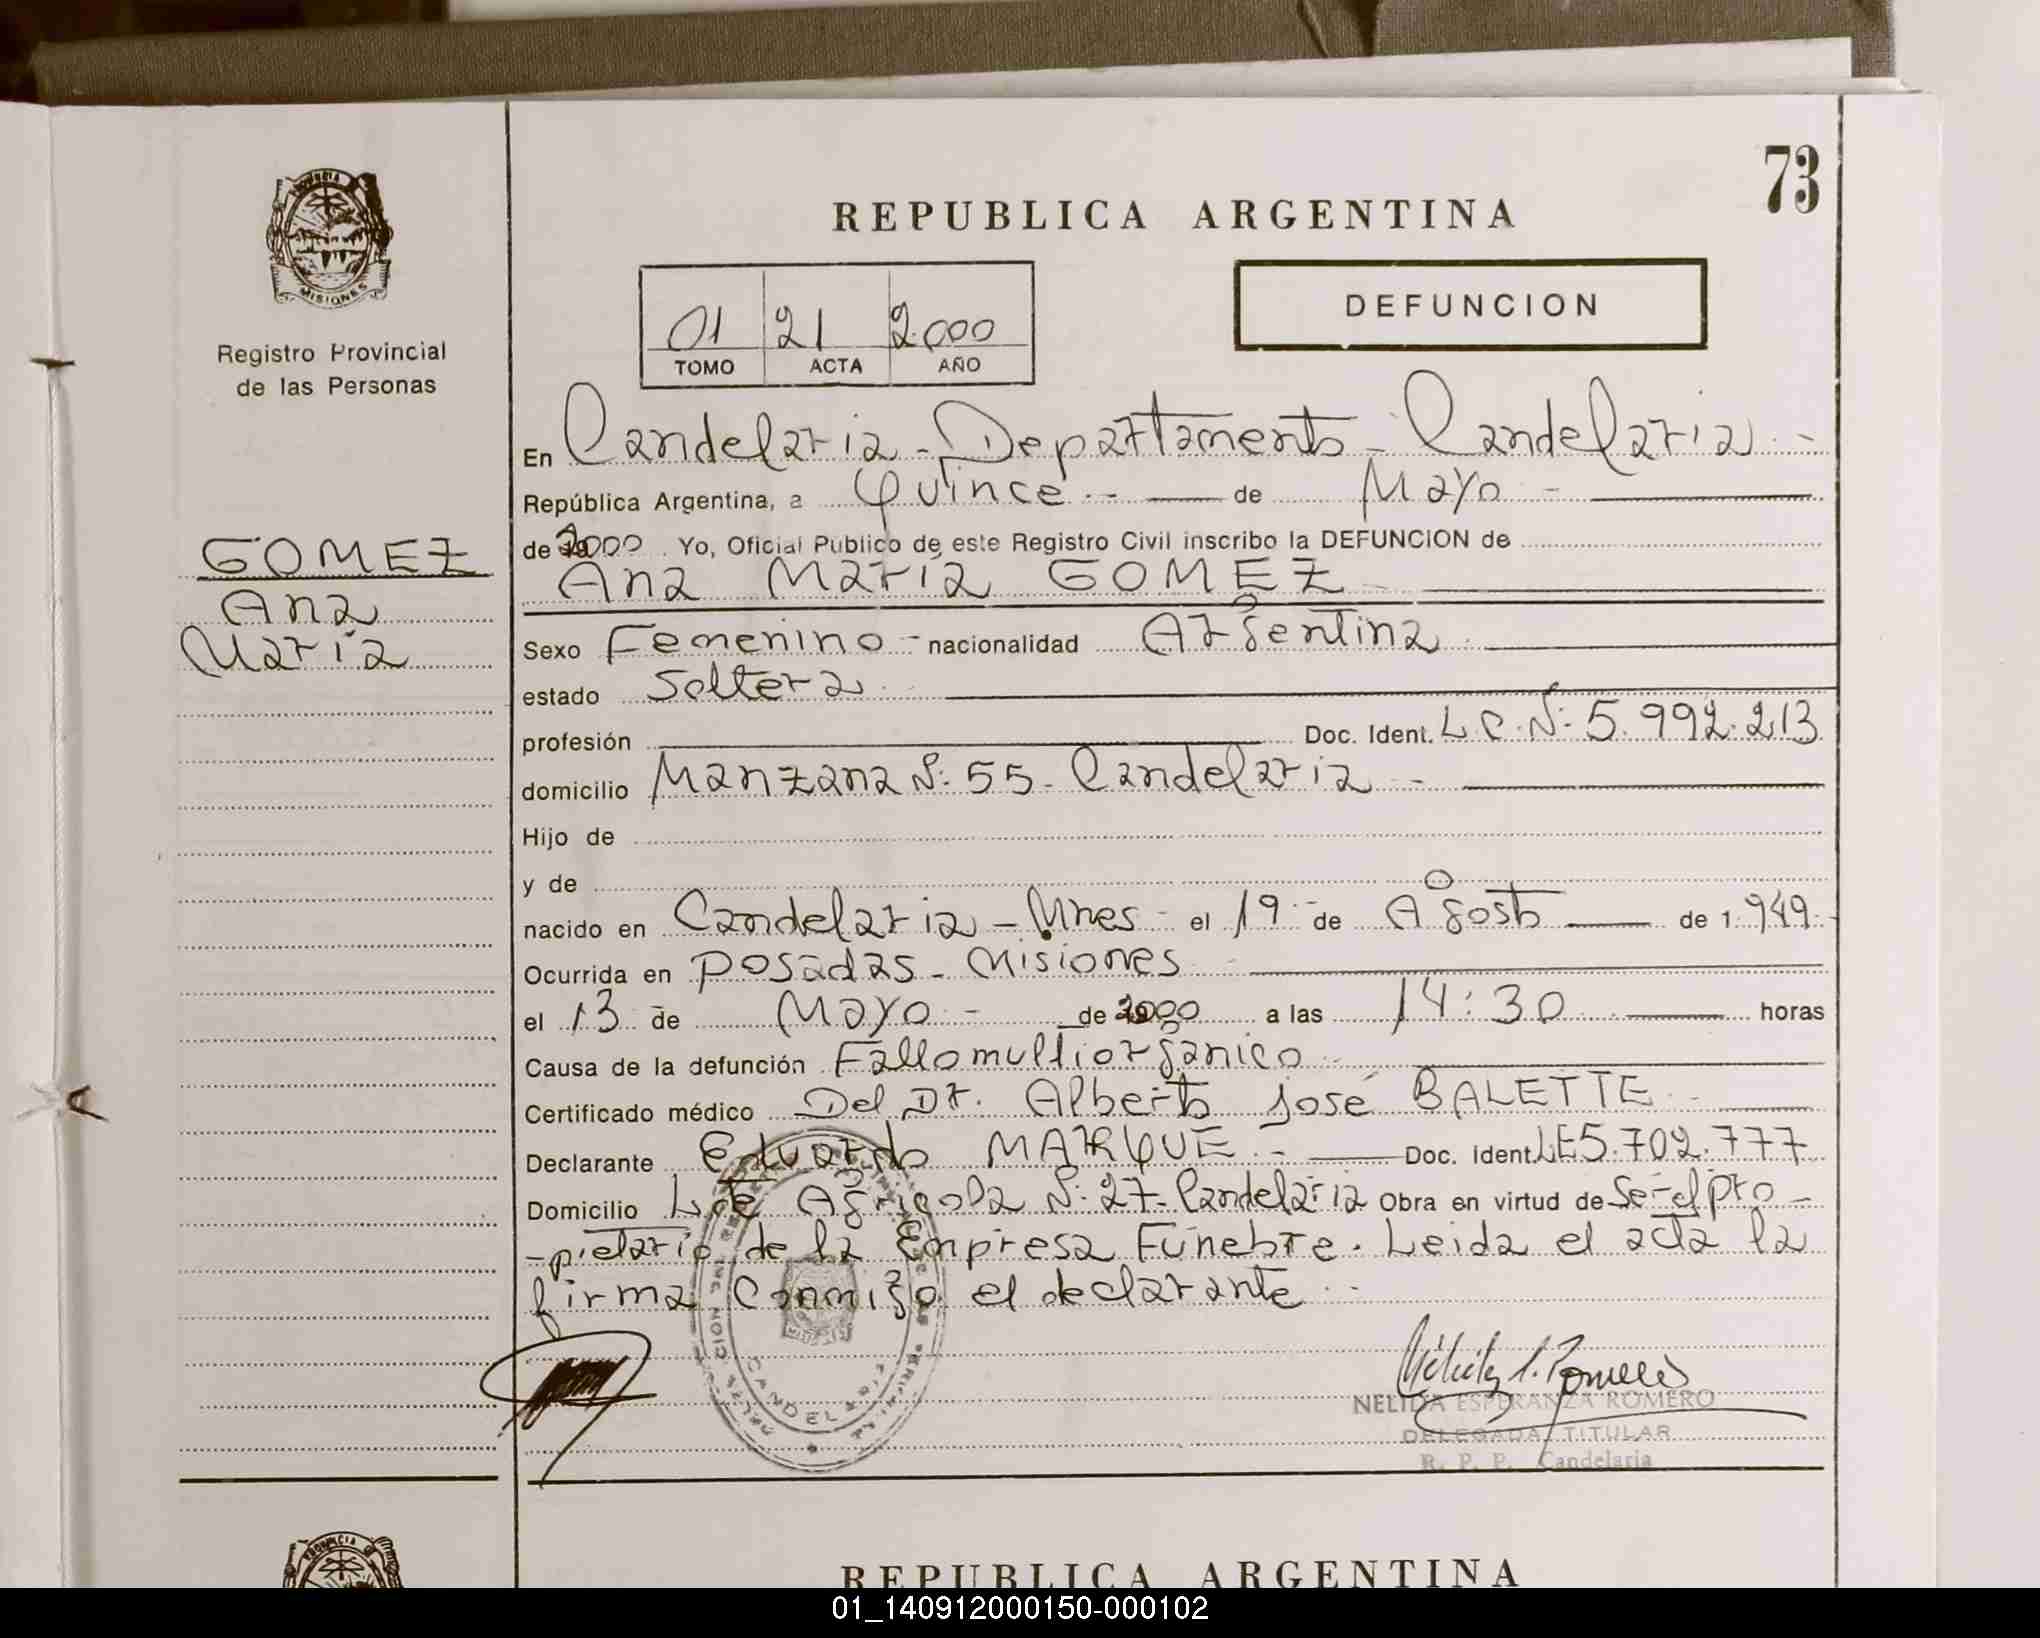 73
REPUBLICA ARGENTINA
PROVINCIA DE
MISIONES
Registro Provincial
de las Personas
01 21 2.000
TOMO ACTA AÑO
DEFUNCION
GOMEZ
Ana
María
En Candelaria - Departamento - Candelaria -
República Argentina, a Quince - de Mayo -
de 2000 Yo, Oficial Publico de este Registro Civil inscribo la DEFUNCION de
Ana María GOMEZ
Sexo Femenino - nacionalidad Argentina
estado Soltera
profesión Doc. Ident. L C. Nº 5.992.213
domicilio Manzana Nº 55 - Candelaria -
Hijo de
y de
nacido en Candelaria - Mnes - el 19 - de Agosto de 1.949.-
Ocurrida en Posadas - Misiones
el 13 de Mayo - de 2000 a las 14:30 horas
Causa de la defunción Fallo multiorgánico -
Certificado médico Del Dr. Alberto José BALETTE
Declarante Eduardo MARQUE - Doc. Ident. LE 5.702.777
Domicilio Lote Agricola Nº 27 - Candelaria Obra en virtud de Ser el pro-
-pietario de la Empresa Fúnebre. Leida el acta la
firma Conmigo el declarante -
CANDELARIA
NELIDA ESPERANZA ROMERO
DELEGADA TITULAR
R. P. P. Candelaria
REPUBLICA ARGENTINA
01_140912000150-000102